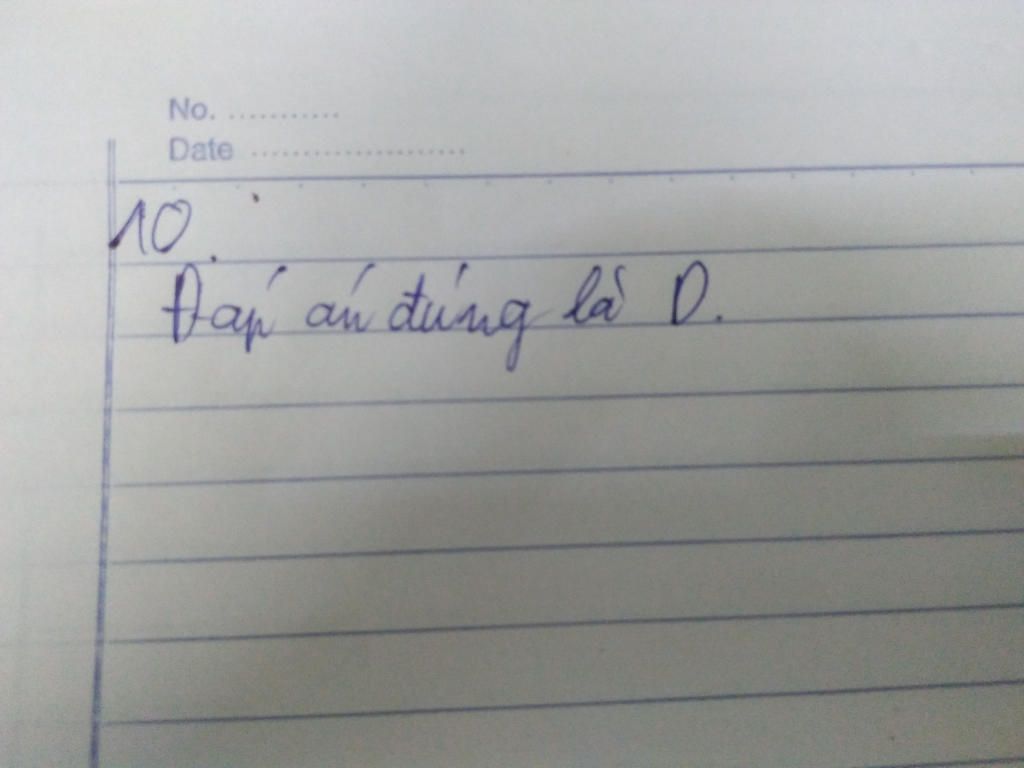 No. ...........
Date ......................
10.
Đáp án đúng là D.